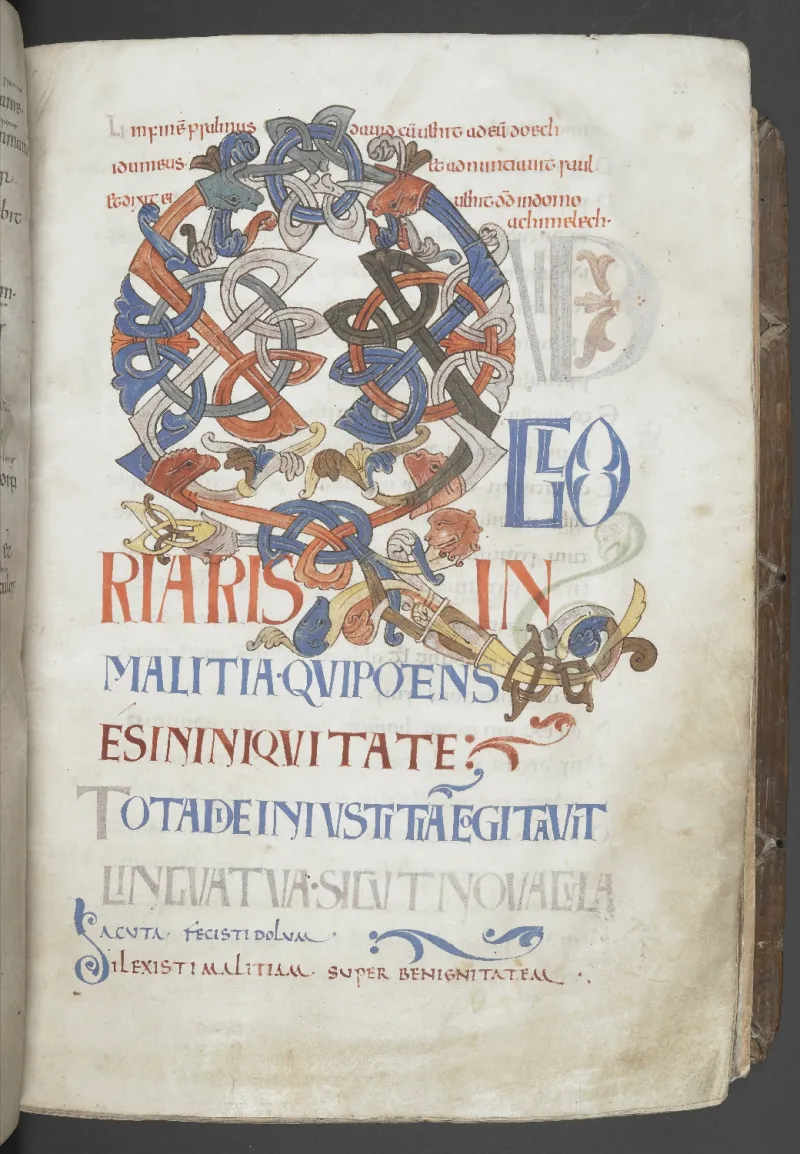 In finē psalmus dauid cū uenit ad eū doech
idumeus et adnuntiauit saul
et dixit ei uenit dd in domo
achimelech·
QVID
GLO
RIARIS IN
MALITIA·QVI POTENS
ES IN INIQVITATE:
TOTA DIE INIVSTITIĀ COGITAVIT
LINGVA TVA·SICVT NOVACVLA
ACVTA FECISTI DOLVM·
DILEXISTI MALITIAM· SUPER BENIGNITATEM·